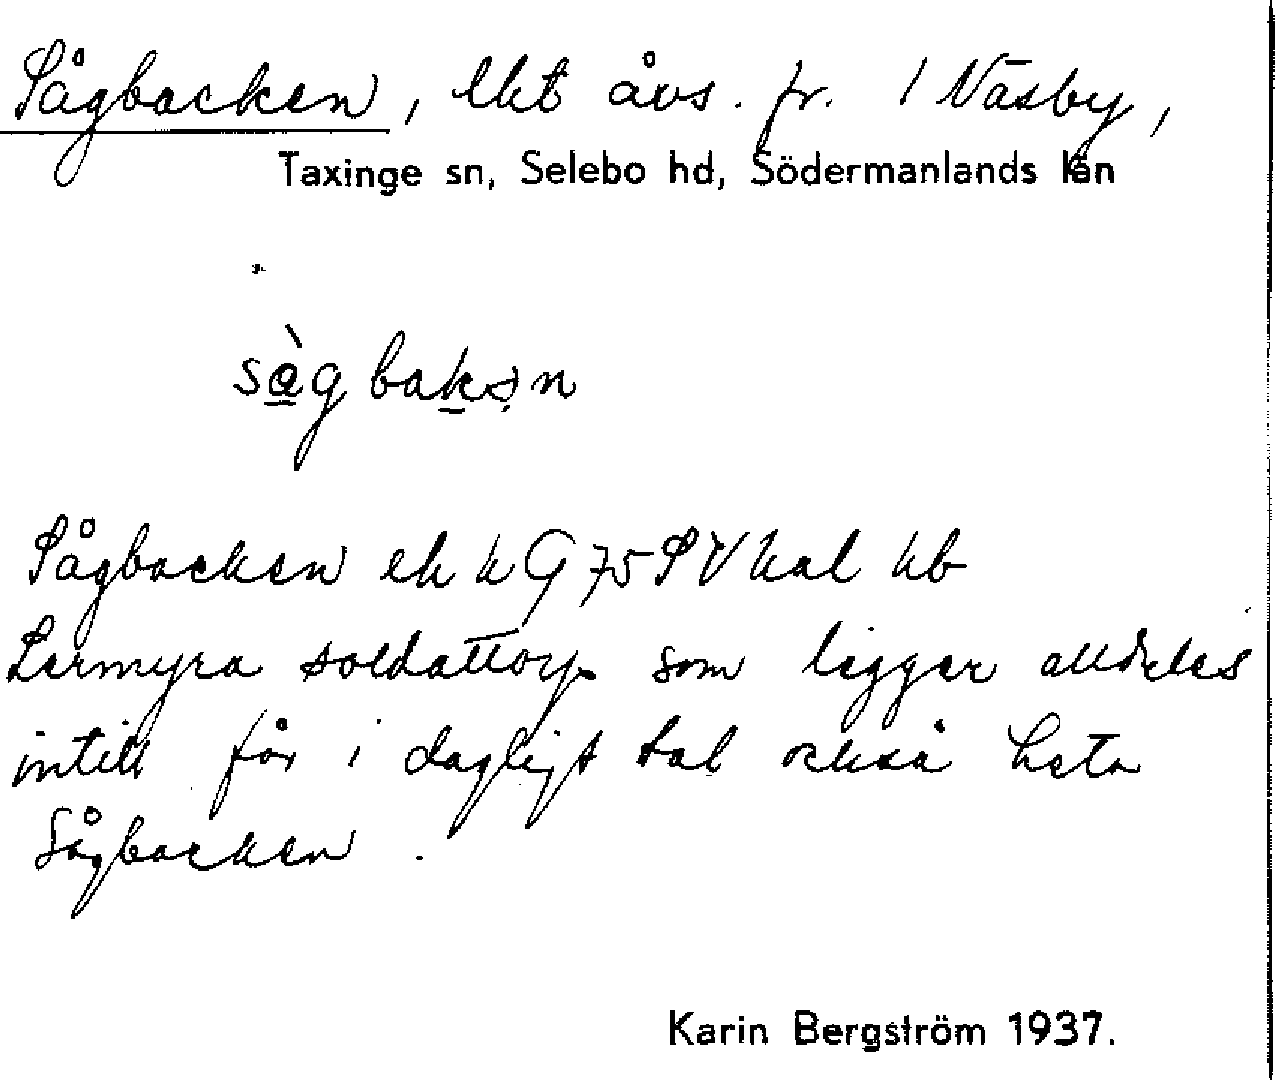 Sågbacken, lht åvs. fr. 1 Näsby,
Taxinge sn, Selebo hd, Södermanlands län
sågbakən
Sågbacken ek k G 75 S V kal kb
Lermyra soldattorp som ligger alldeles
intill får i dagligt tal också heta
Sågbacken.
Karin Bergström 1937.